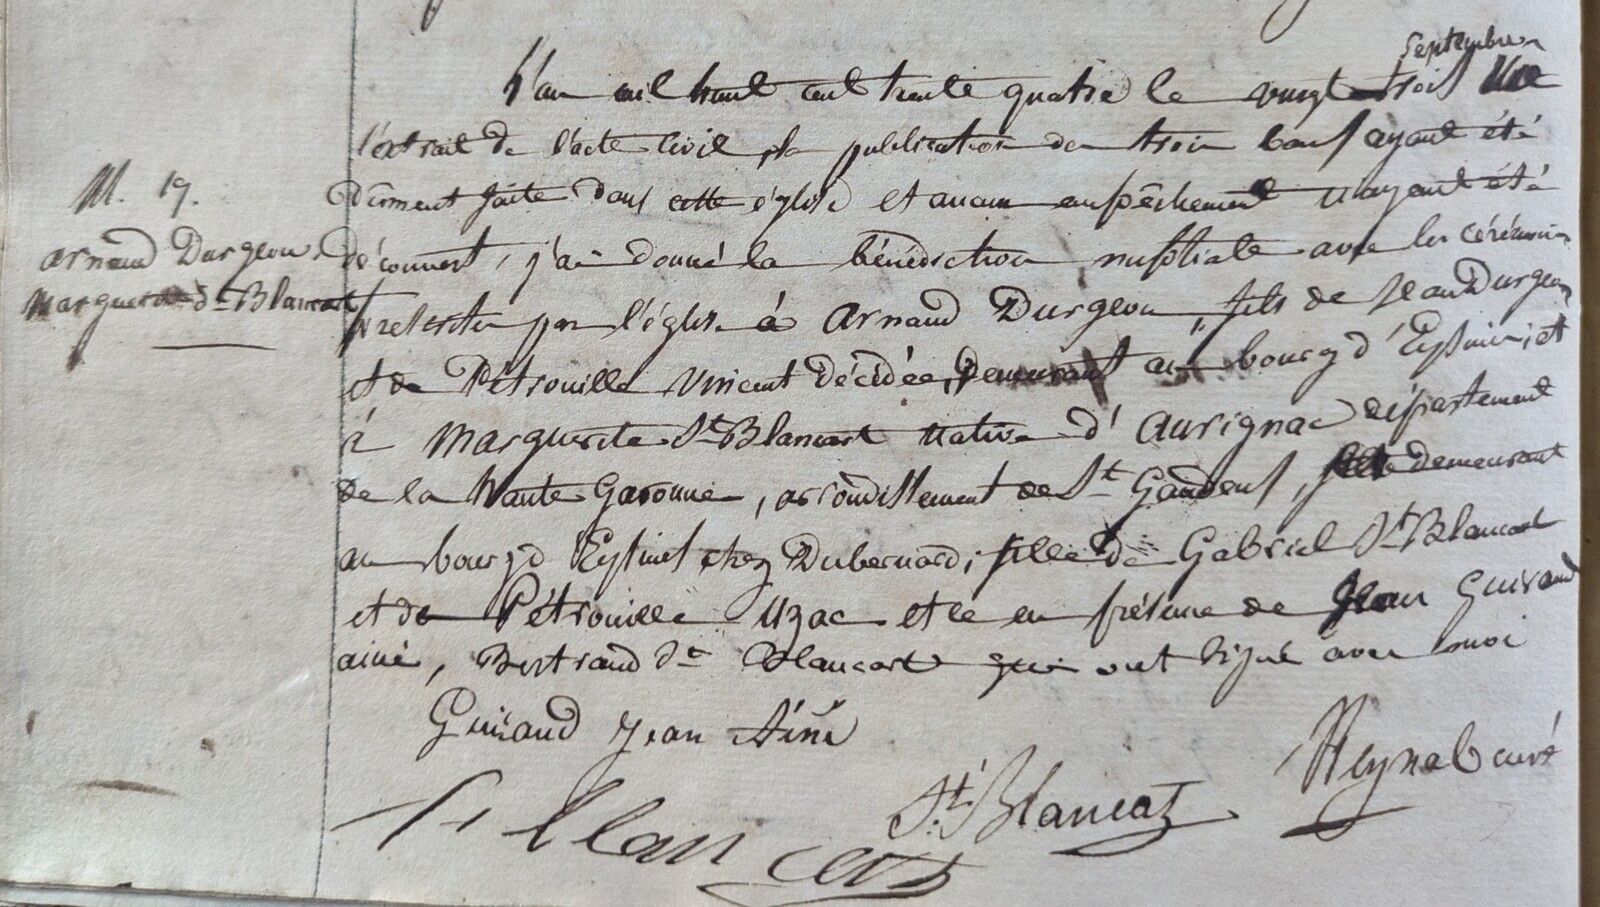 M. 19.
Arnaud Durgeon
Marguerite St Blancart
Septembre
L'an mil huit cent trente quatre le vingt trois Vu
l'extrait de l'acte civil, la publication de trois bans ayant été
dûment faite dans cette église et aucun empêchement n'ayant été
découvert, j'ai donné la bénédiction nuptiale avec les cérémonies
prescrites par l'église à Arnaud Durgeon, fils de Jean Durgeon
et de Pétrouille Vincent décédée, demeurant au bourg d'Eysines, et
à Marguerite St Blancart native d'Aurignac département
de la haute Garonne, arrondissement de St Gaudens, demeurant
au bourg d'Eysines chez Dubernard; fille de Gabriel St Blancart
et de Pétrouille Uzac et ce en présence de Jean Guiraud
ainé, Bertrand St Blancart qui ont signé avec moi
Guiraud Jean Ainé
St Blancat
Meynal curé
St Blancat